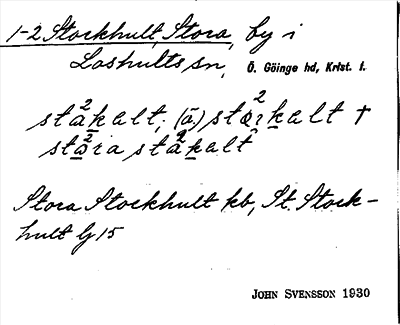 1-2 Stockhult, Stora, by i
Loshults sn, Ö. Göinge hd, Krist. l.
sta²kalt; (ä.) sta²rkalt †
stå²ra sta²kalt
Stora Stockhult kb, St. Stock-
hult Gj 15
JOHN SVENSSON 1930